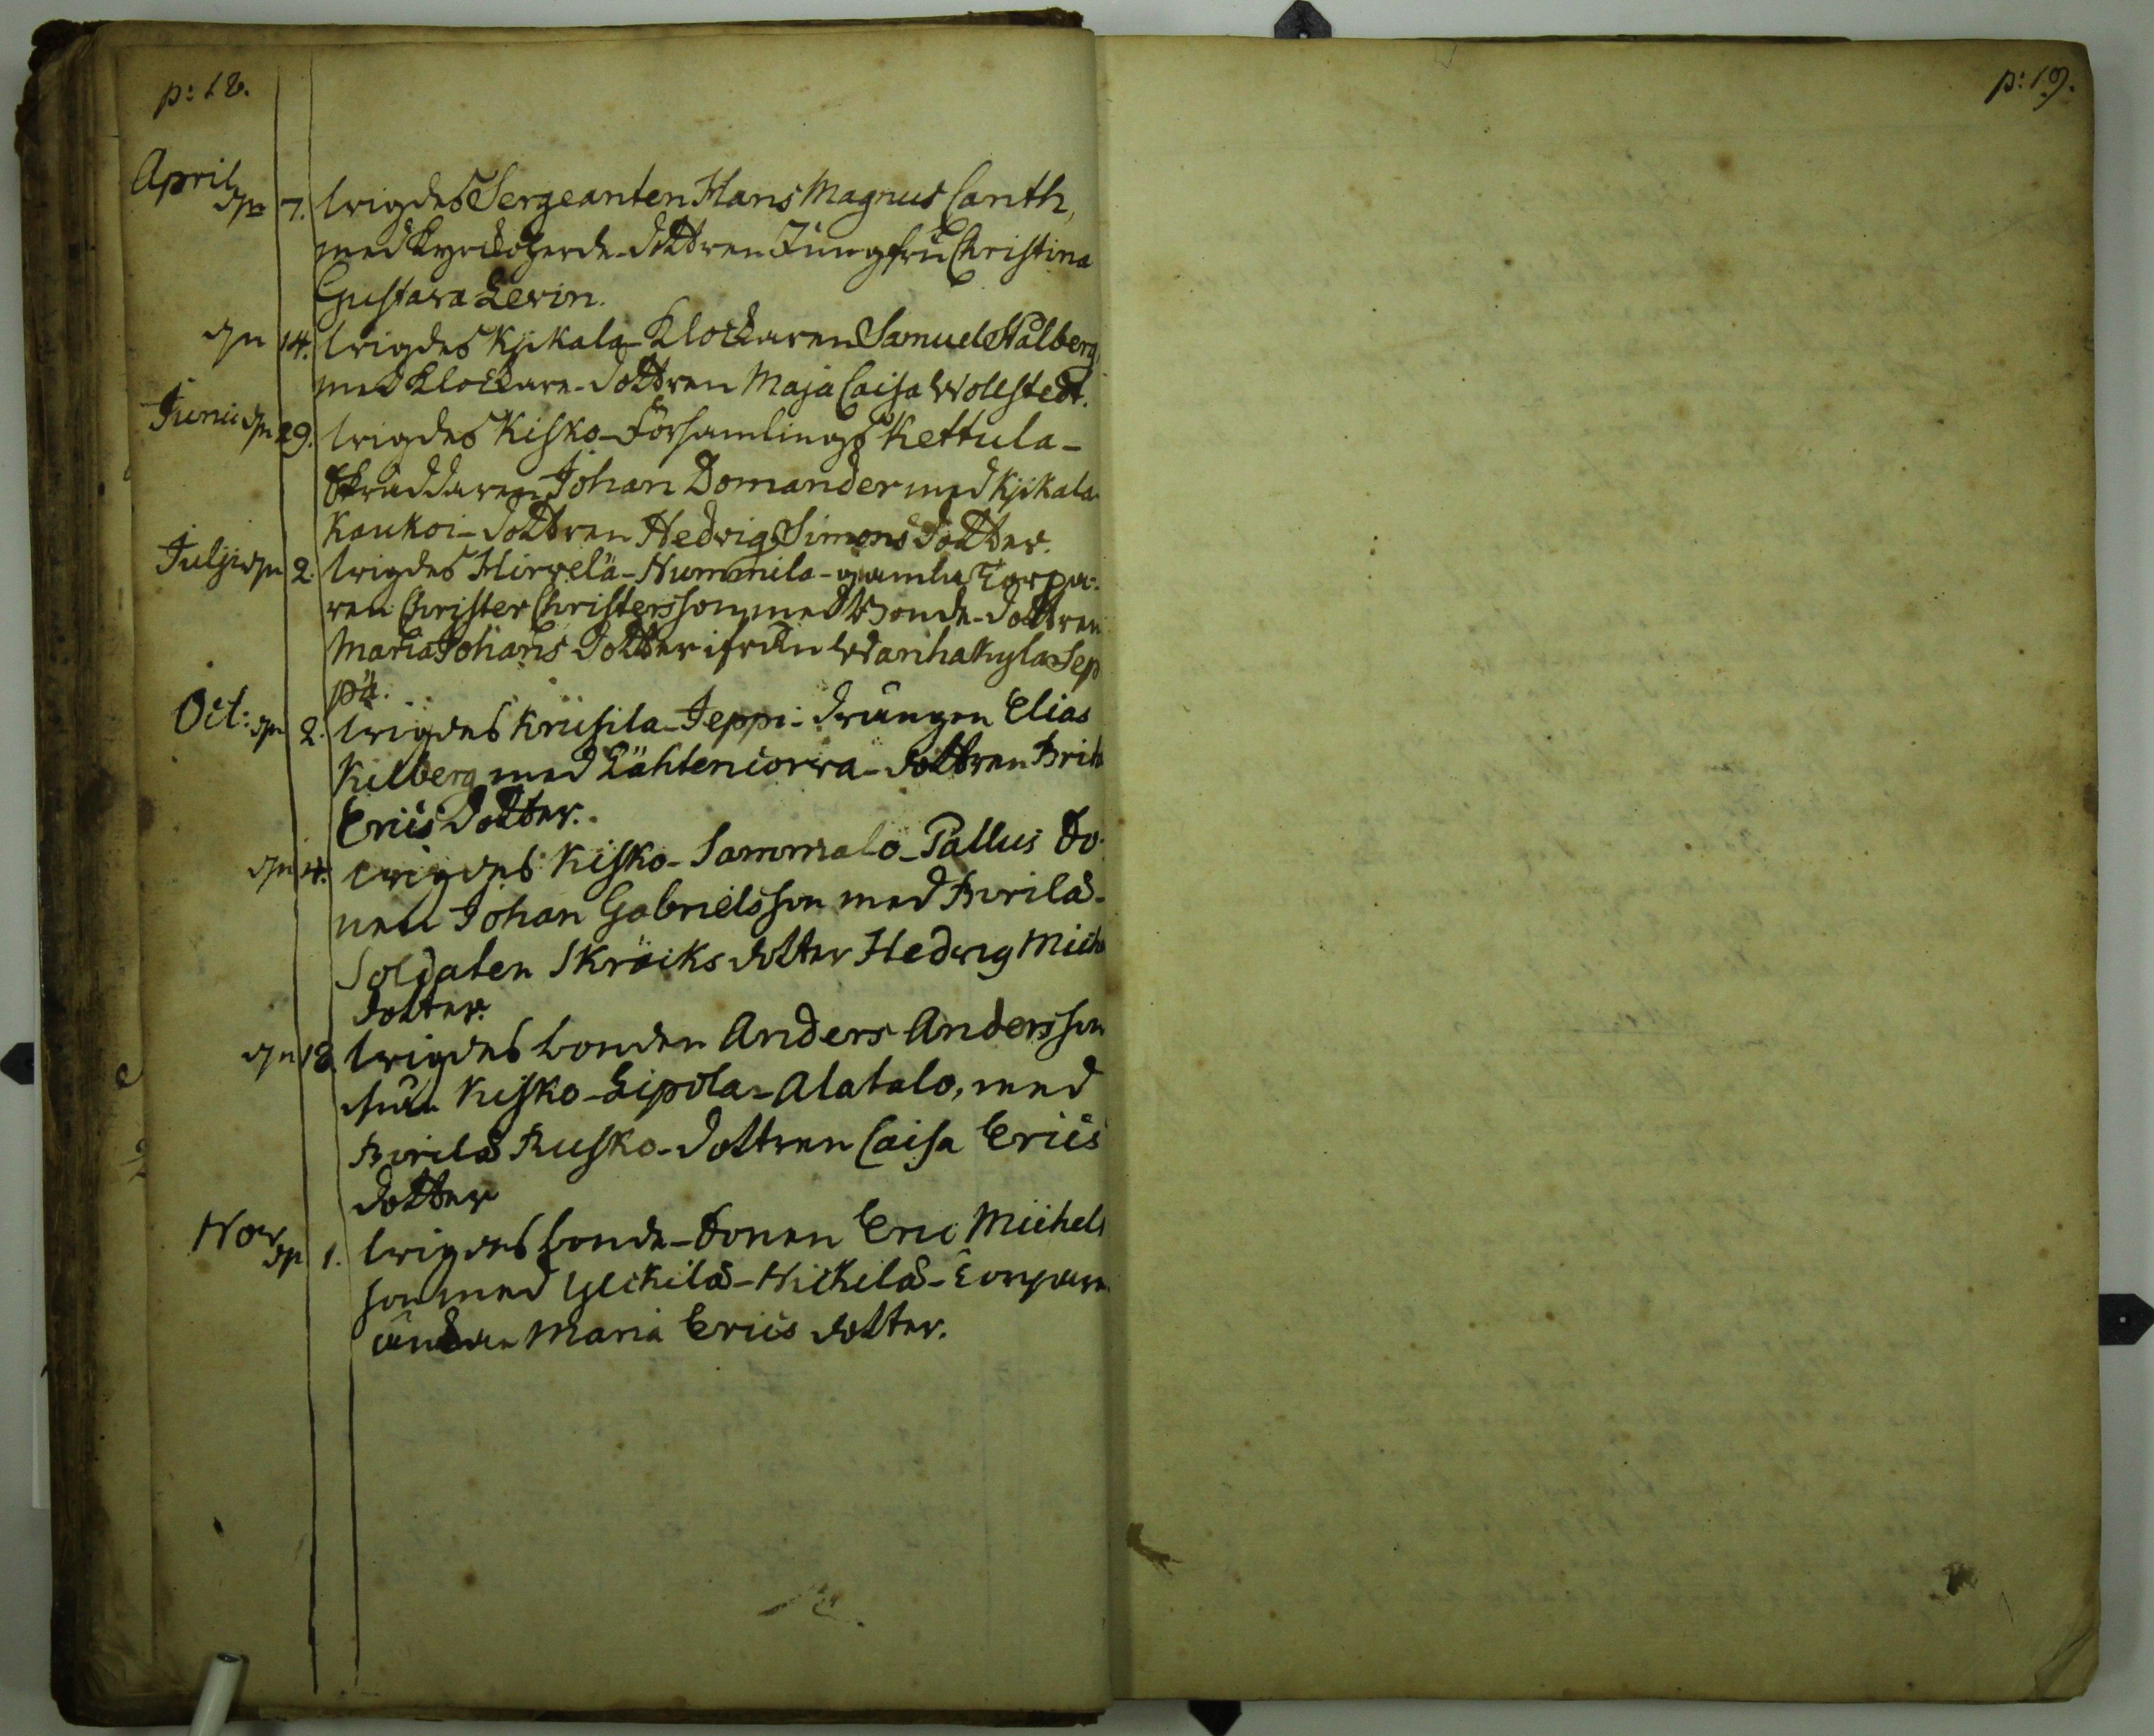 p: 18.
p: 19.
April
dn 7. wigdes Sergeanten Hans Magnus Canth,
med Kyrckoherde-dottren Jungfru Christina
Gustava Levin.
dn 14. wigdes Kjikala-Klockaren Samuel Stålberg,
med Klockare-dottren Maja Caisa Wollstedt.
Junii dn 29. wigdes Kisko-Församlings Kettula-
Skräddaren Johan Domander med Kjikala-
Kaukoi-dottren Hedvig Simons dotter.
Julji dn 2. wigdes Hirvelä-Nummila-gamla Torpa-
ren Christer Christersson, med Bonde-dottren
Maria Johans dotter ifrån Wanhakyla Sep
pä.
Oct: dn 2. wigdes Krusila-Jeppi-drängen Elias
Kilberg med Lähteniorva-dottren Brita
Erics dotter.
dn 4. wigdes Kisko-Sammalo-Pallus So-
nen Johan Gabrielsson med Borila-
Soldaten Skräcks dotter Hedvig Mich
dotter.
dn 18 wigdes bonden Anders Andersson
från Kisko-Lipola-Alatalo, med
Borila Rusko-dottren Caisa Erics
dotter
Nov
dn 1. wigdes bonde-Sonen Eric Michels
son med Yckilä-Nickilä-Torpare
änckan Maria Erics dotter.